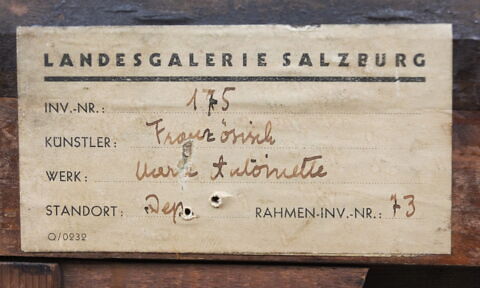 LANDESGALERIE SALZBURG
INV.-NR.: 175
KÜNSTLER: Französisch
WERK: Marie Antoinette
STANDORT: Dep. RAHMEN-INV.-NR.: 73
Q/0232